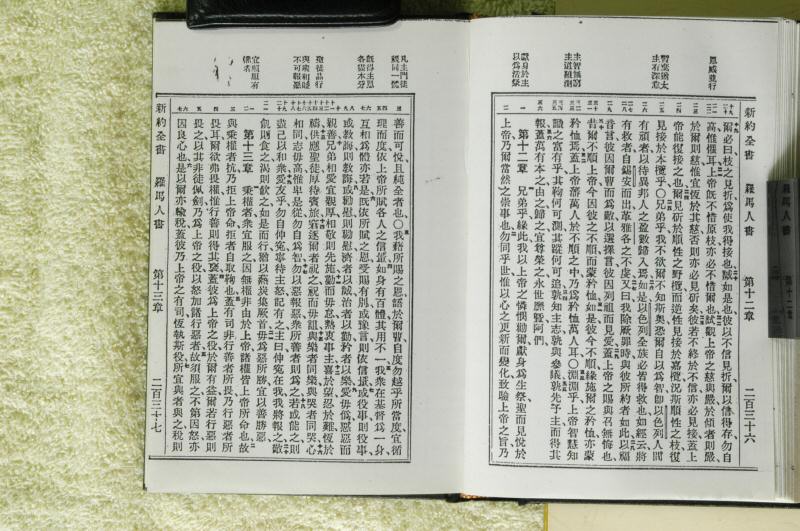 恩威並行
暫棄猶太
主有深意
主智無窮
主道難測
獻身於主
以爲活祭
新約全書　羅馬人書　第十二章　二百三十六
爾必曰枝之見折爲使我得接也誠如是也彼以不信見折爾以信得存勿自
高惟惧耳上帝旣不惜原枝亦必不惜爾也試觀上帝之慈與嚴於傾者則嚴
於爾則慈惟宜恆於其慈否則亦必見斫矣彼若不終於不信亦必見接蓋上
帝能復接之也爾見斫於順性之野欖而逆性見接於嘉欖况斯順性之枝復
見接於本欖乎○兄弟乎我不欲爾不知斯奧恐爾自以爲智卽以色列人間
有頑者以待異邦人之盈數歸入焉如是以色列全族必皆得救也如經云將
有救者自錫安而出革雅各之不虔又曰我除厥罪時與彼所約者如此以福
音言彼因爾曹而爲敵以選擇言彼因列祖而見愛蓋上帝之賜與召無悔也
昔爾不順上帝今因彼之不順而蒙矜恤如是彼今不順緣施爾之矜恤亦蒙
矜恤焉蓋上帝溷萬人於不順之中乃爲矜恤萬人耳○淵淵乎上帝智慧知
識之富有乎其鞫何可測其蹤何可追孰知主志孰與參議孰先予主而得其
報蓋萬有本之由之歸之宜尊榮之永世靡曁阿們
第十二章　兄弟乎緣此我以上帝之憐憫勸爾獻身爲生祭聖而見悅於
上帝乃爾當然之崇事也勿同乎斯世惟以心之更新而變化致驗上帝之旨乃
凡主門徒
視同一體
旣得主恩
各盡本分
聖徒品行
與衆和睦
不可報怨
宜順服有
權者
新約全書　羅馬人書　第十三章　二百三十七
善而可悅且純全者也○我藉所賜之恩語於爾曹自度勿越乎所當度宜循
理而度依上帝所賦各人之信量如一身有百體其用不一我衆在基督爲一身
互相爲體亦若是旣依所賦之恩受賜有別或豫言則依信量或役事則役事
或教誨則教誨或勸慰則勸慰濟者以誠治者以勤矜者以樂愛毋僞慝惡而
親善兄弟相愛宜親厚相敬則先施勤而毋怠熱衷事主喜於望忍於難恆於
禱供應聖徒厚待賓旅窘逐爾者祝之祝而毋詛與樂者同樂與哭者同哭心
相同志毋高惟卑是從勿自爲智勿以惡報惡衆所善者則爲之若或能之則
盡己以和衆愛友乎勿自伸寃寧待主怒記有之主曰伸寃在我我將報之敵
飢則食之渴則飮之如是而行猶以爇炭集厥首毋爲惡所勝宜以善勝惡
第十三章　秉權者衆宜服之因無權非由於上帝諸權皆上帝所命也故
與秉權者抗乃拒上帝命拒者自取鞫也蓋有司非行善者所畏乃行惡者所
畏耳爾欲弗畏權惟行善則得其褒蓋彼爲上帝之役於爾有益爾若行惡則
畏之以其非徒佩劍乃爲上帝之役以怒加諸行惡者故須服之不第因怒亦
因良心也是以爾亦輸稅蓋彼乃上帝之有司恆執斯役所宜與者與之稅則